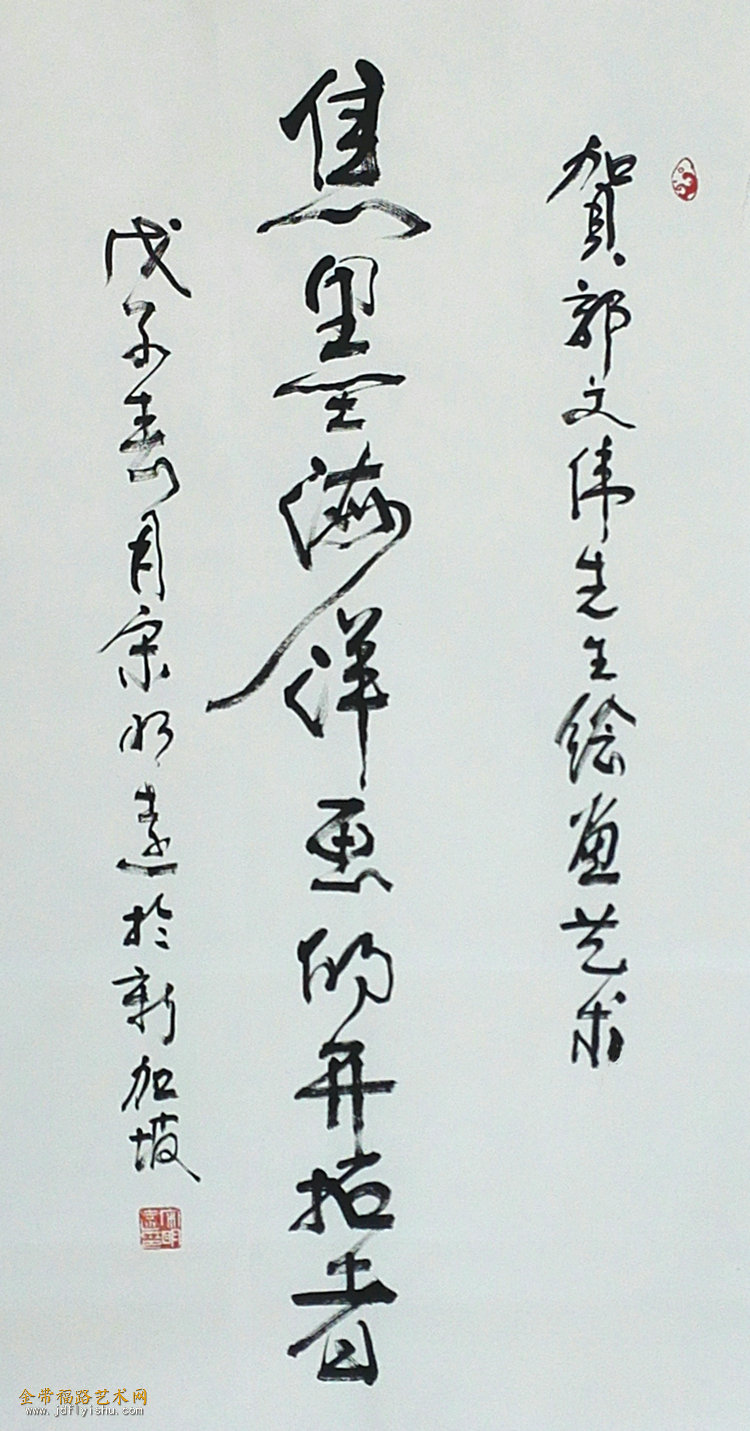 贺郭文伟先生绘画艺术
焦墨海洋画的开拓者
戊子春月宋明远於新加坡
金带福路艺术网
www.jdflyishu.com